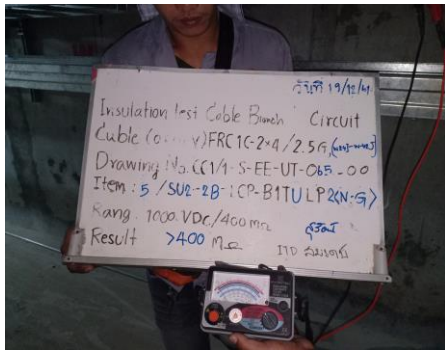 วันที่ 19/12/61
Insulation test Cable Branch Circuit
Cable (0. v) FRC 1C-2×4/2.5G
Drawing No. CC1/1-S-EE-UT-065-00
Item : 5 /SU2-2B- CP-B1TULP2<N-G>
Rang. 1000 VDC/400 mΩ
Result >400 MΩ
ITD